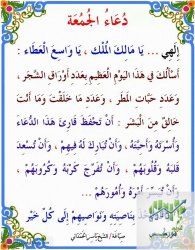 دُعَاءُ الجُمُعَة
إِلهِي ... يَا مَالِكَ المُلْكِ ، يَا وَاسِعَ العَطَاءِ :
أَسْأَلُكَ فِي هَذَا اليَوْمِ العَظِيمِ بِعَدَدِ أَوْرَاقِ الشَّجَرِ ،
وَعَدَدِ حَبَّاتِ المَطَرِ ، وَعَدَدِ مَا خَلَقْتَ وَمَا أَنْتَ
خَالِقٌ مِنَ البَشَرِ : أَنْ تَحْفَظَ قَارِئَ هَذَا الدُّعَاءِ
وَأُسْرَتَهُ وَأَحِبَّتَهُ ، وَأَنْ تُبَارِكَ لَهُ فِيهِمْ ، وَأَنْ تُسْعِدَ
قَلْبَهُ وَقُلُوبَهُمْ ، وَأَنْ تُفَرِّجَ كَرْبَهُ وَكُرُوبَهُمْ ،
وَأَنْ أَمْرَهُ وَأُمُورَهُمْ ...
بِنَاصِيَتِهِ وَنَوَاصِيهِمْ إِلَى كُلِّ خَيْرٍ
صِيَاغَة / الشيخ